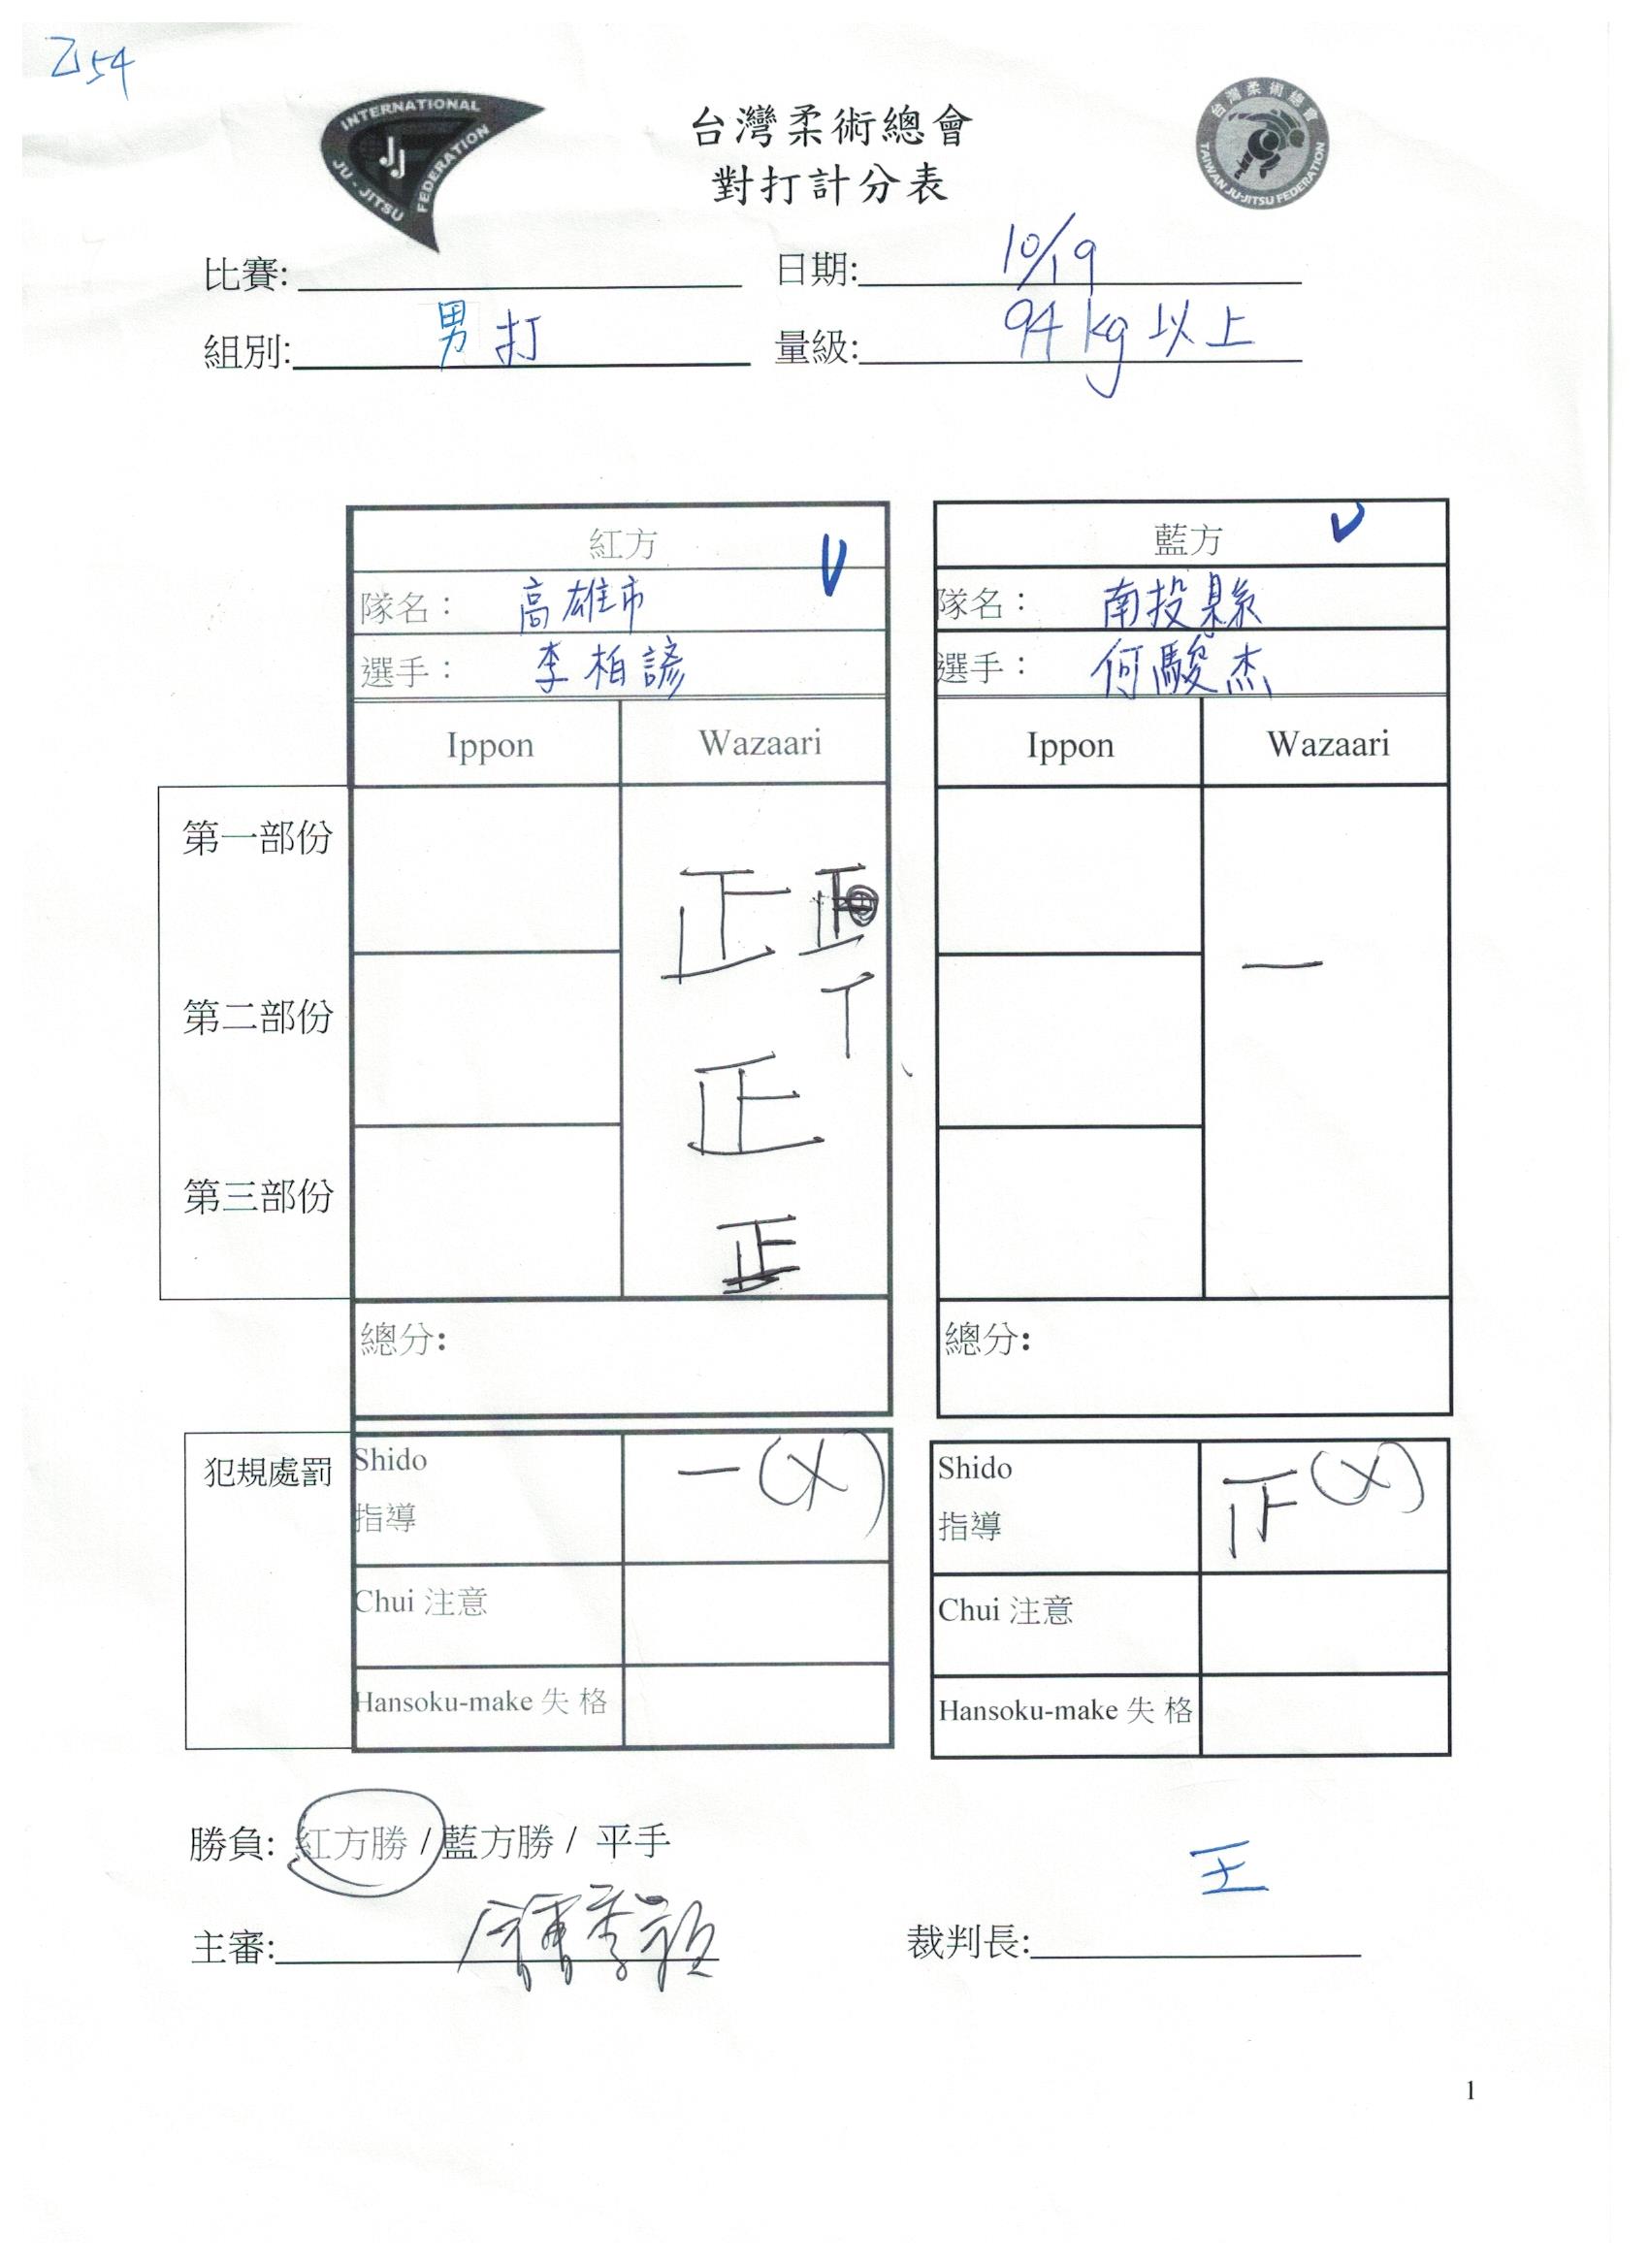 乙54
INTERNATIONAL JU-JITSU FEDERATION
JJ
台灣柔術總會
對打計分表
台灣柔術總會
TAIWAN JU-JITSU FEDERATION
比賽: 日期: 10/19
組別: 男打 量級: 94kg以上
紅方 藍方
隊名: 高雄市 隊名: 南投縣
選手: 李柏諺 選手: 何駿杰
Ippon Wazaari Ippon Wazaari
第一部份
正 正
一
第二部份
丅
正
第三部份
正
總分: 總分:
犯規處罰 Shido 一(X) Shido (X)
指導 指導
Chui 注意 Chui 注意
Hansoku-make 失 格 Hansoku-make 失 格
勝負: 紅方勝 / 藍方勝 / 平手
王
主審: 裁判長:
1